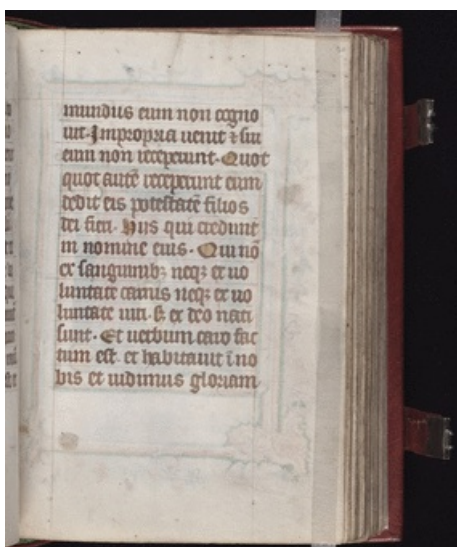 mundus eum non cogno
uit. In propria uenit ⁊ sui
eum non receperunt. Quot
quot autē receperunt eum
dedit eis potestatē filios
dei fieri. Hijs qui credunt
in nomine eius. Qui nō
ex sanguinibꝫ neqꝫ ex uo
luntate carnis neqꝫ ex uo
luntate uiri. s; ex deo nati
sunt. Et uerbum caro fac
tum est. et habitauit ī no
bis et uidimus gloriam